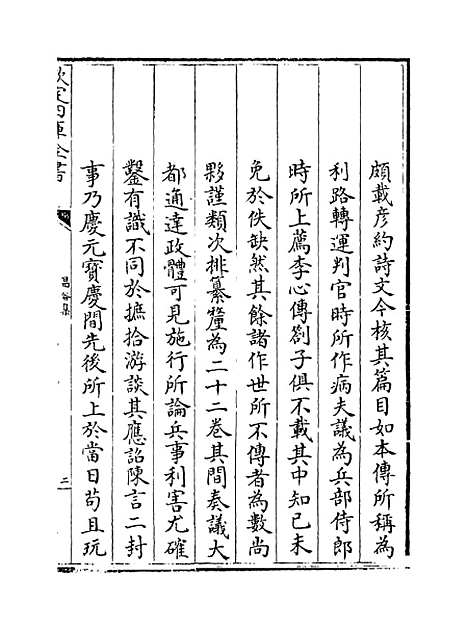 頗載彦約詩文今核其篇目如本傳所稱為
利路轉運判官時所作病夫議為兵部侍郎
時所上薦李心傳劄子俱不載其中知已未
免於佚缺然其餘諸作世所不傳者為數尚
夥謹類次排纂釐為二十二卷其間奏議大
都通達政體可見施行所論兵事利害尤確
鑿有識不同於摭拾游談其應詔陳言二封
事乃慶元寶慶間先後所上於當日苟且玩
欽定四庫全書
昌谷集
三